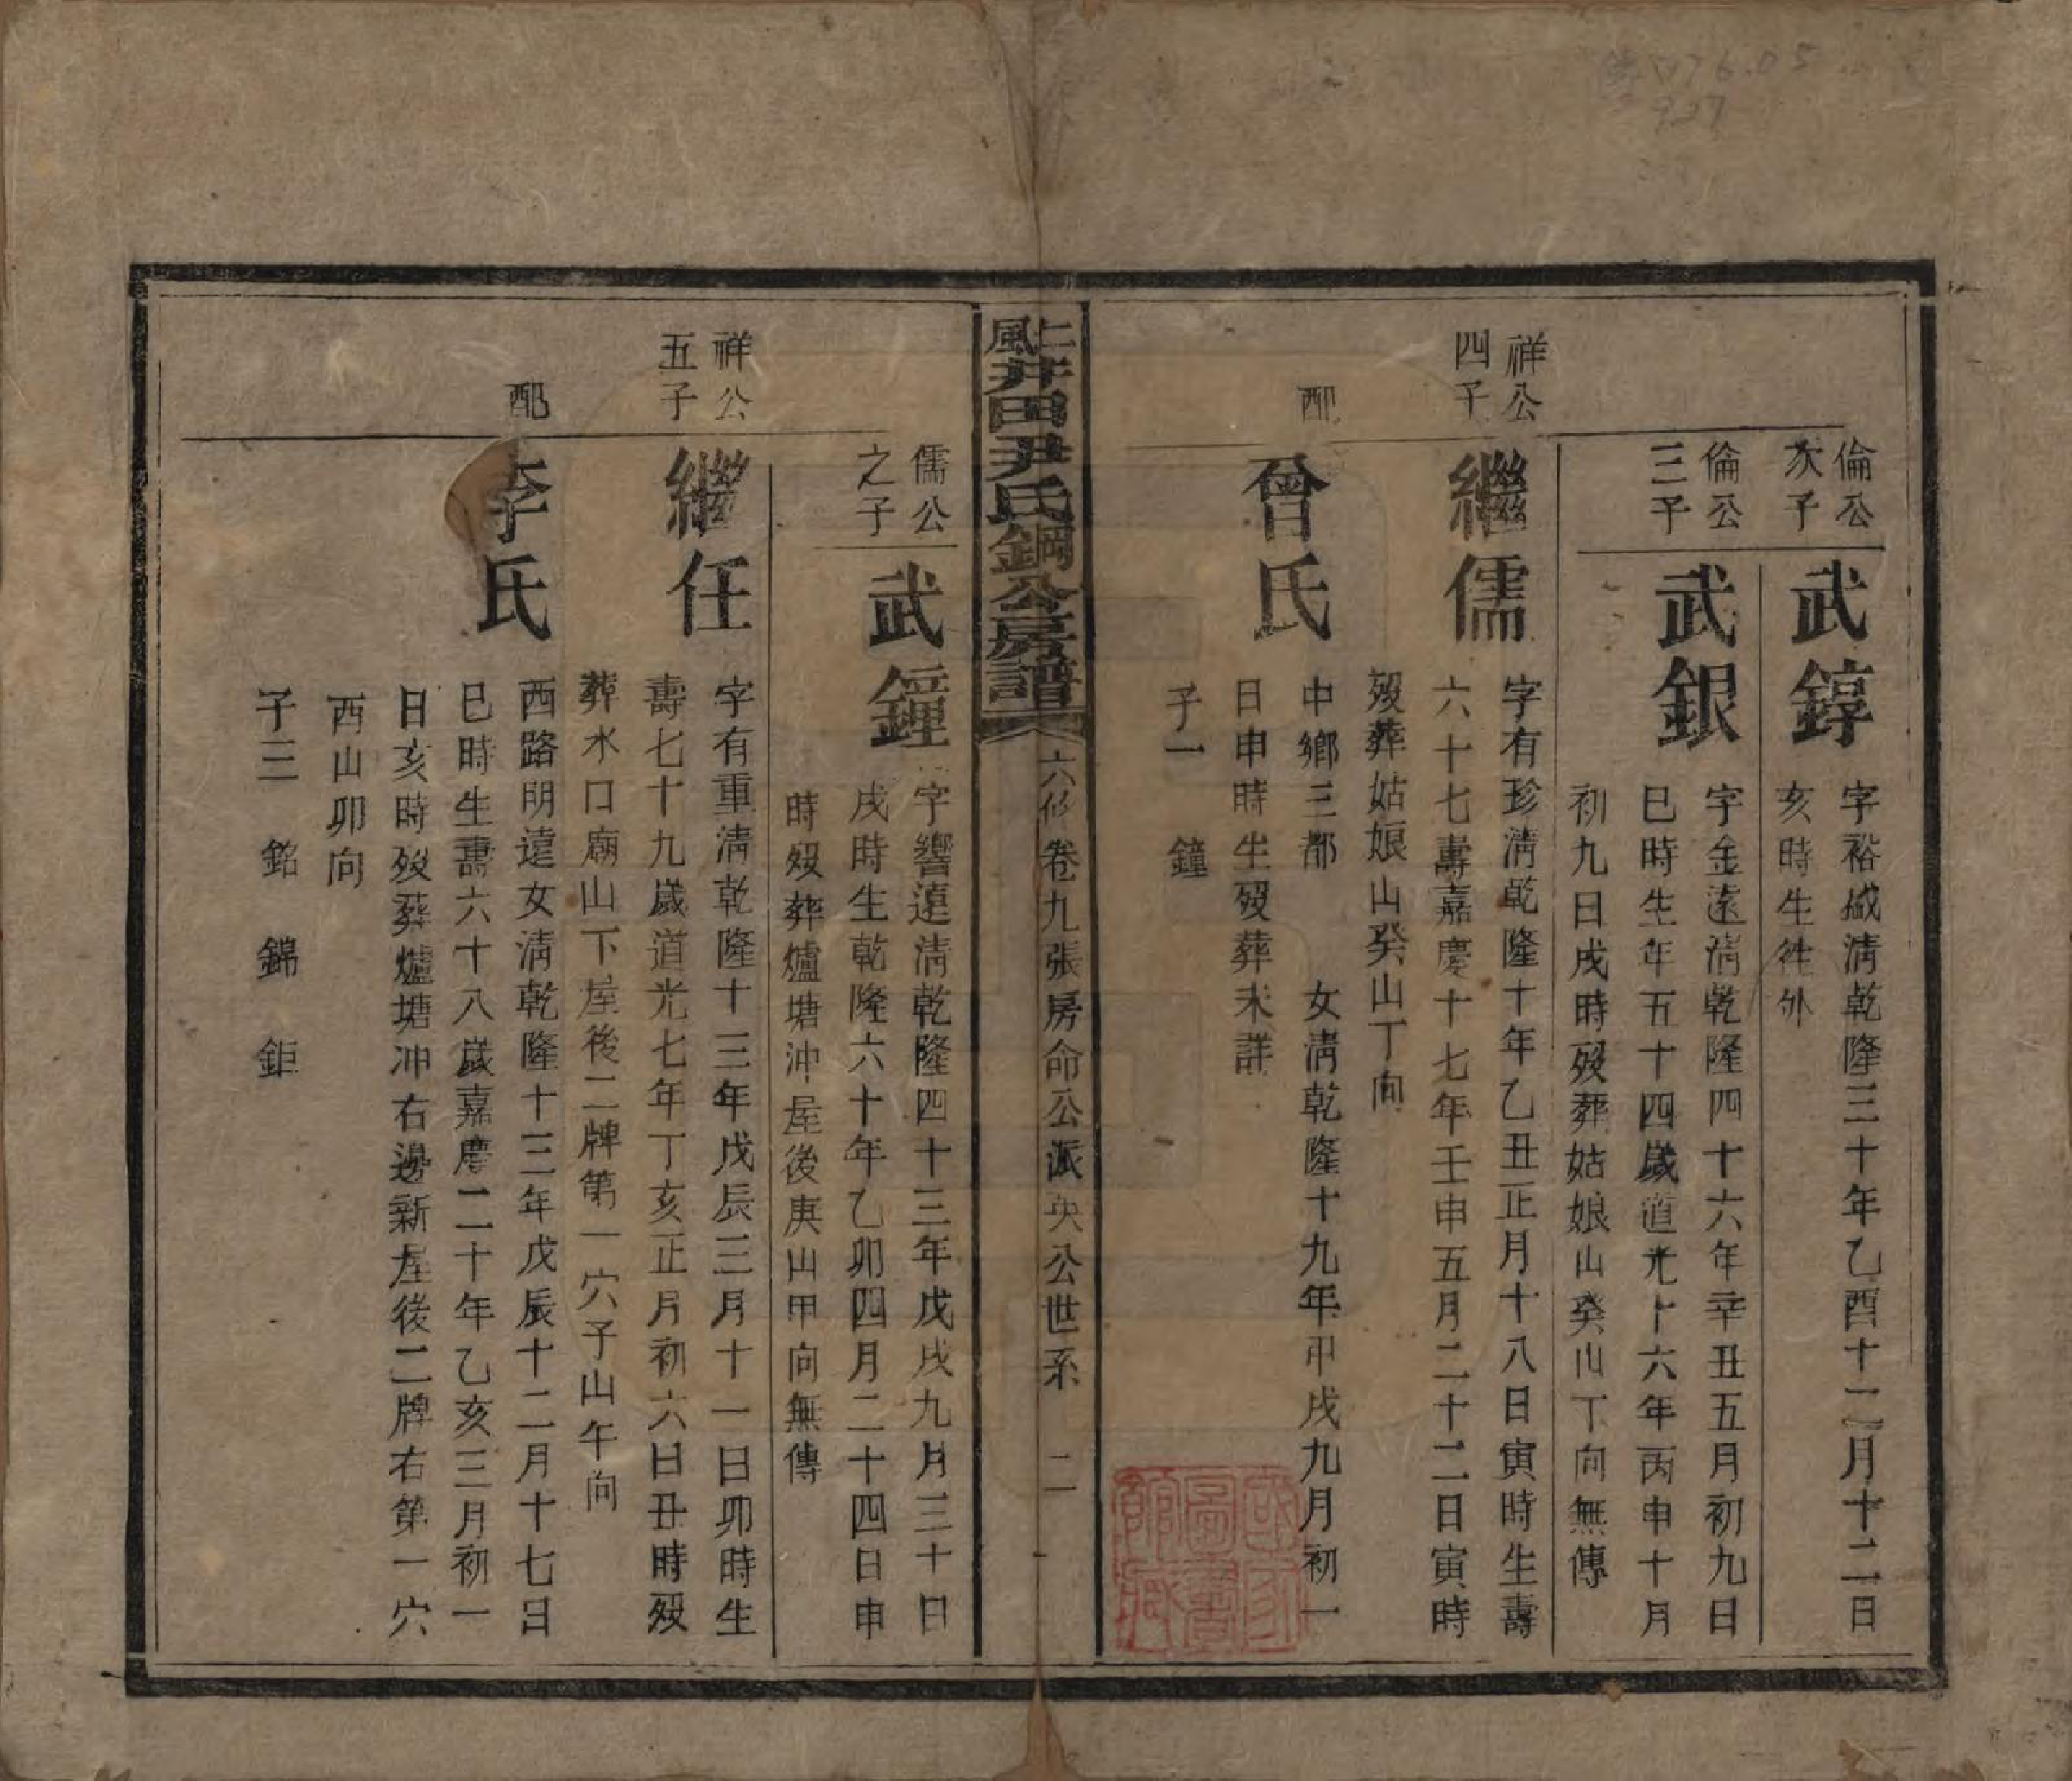 倫公
次子
武錞
字裕盛清乾隆三十年乙酉十二月十二日
亥時生徃外
倫公
三子
武銀
字金遠清乾隆四十六年辛丑五月初九日
巳時生年五十四歲道光十六年丙申十月
初九日戌時歿葬姑娘山癸山丁向無傳
祥公
四子
繼儒
字有珍清乾隆十年乙丑正月十八日寅時生壽
六十七壽嘉慶十七年壬申五月二十二日寅時
歿葬姑娘山癸山丁向
配
曾氏
中鄉三都 女清乾隆十九年甲戌九月初一
日申時生歿葬未詳
子一 鐘
上風井田尹氏鋼公房譜
六修卷九張房命公派央公世系 二
儒公
之子
武鐘
字響遠清乾隆四十三年戊戌九月三十日
戌時生乾隆六十年乙卯四月二十四日申
時歿葬爐塘沖屋後庚山甲向無傳
祥公
五子
繼任
字有重清乾隆十三年戊辰三月十一日卯時生
壽七十九歲道光七年丁亥正月初六日丑時歿
葬水口廟山下屋後二牌第一穴子山午向
配
李氏
西路明遠女清乾隆十三年戊辰十二月十七日
巳時生壽六十八歲嘉慶二十年乙亥三月初一
日亥時歿葬爐塘冲右邊新屋後二牌右第一穴
西山卯向
子三 銘 錦 鉅
國家
圖書
館藏
776.05
927